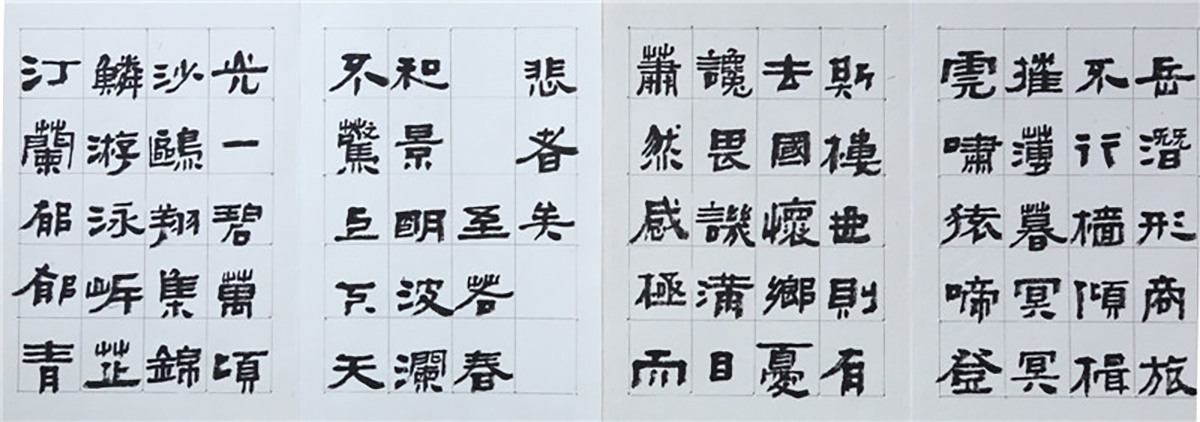 岳潛形商旅
不行檣傾楫
摧薄暮冥冥
虎嘯猿啼登
斯樓也則有
去國懷鄉憂
讒畏譏滿目
蕭然感極而
悲者矣
至若春
和景明波瀾
不驚上下天
光一碧萬頃
沙鷗翔集錦
鱗游泳岸芷
汀蘭郁郁青